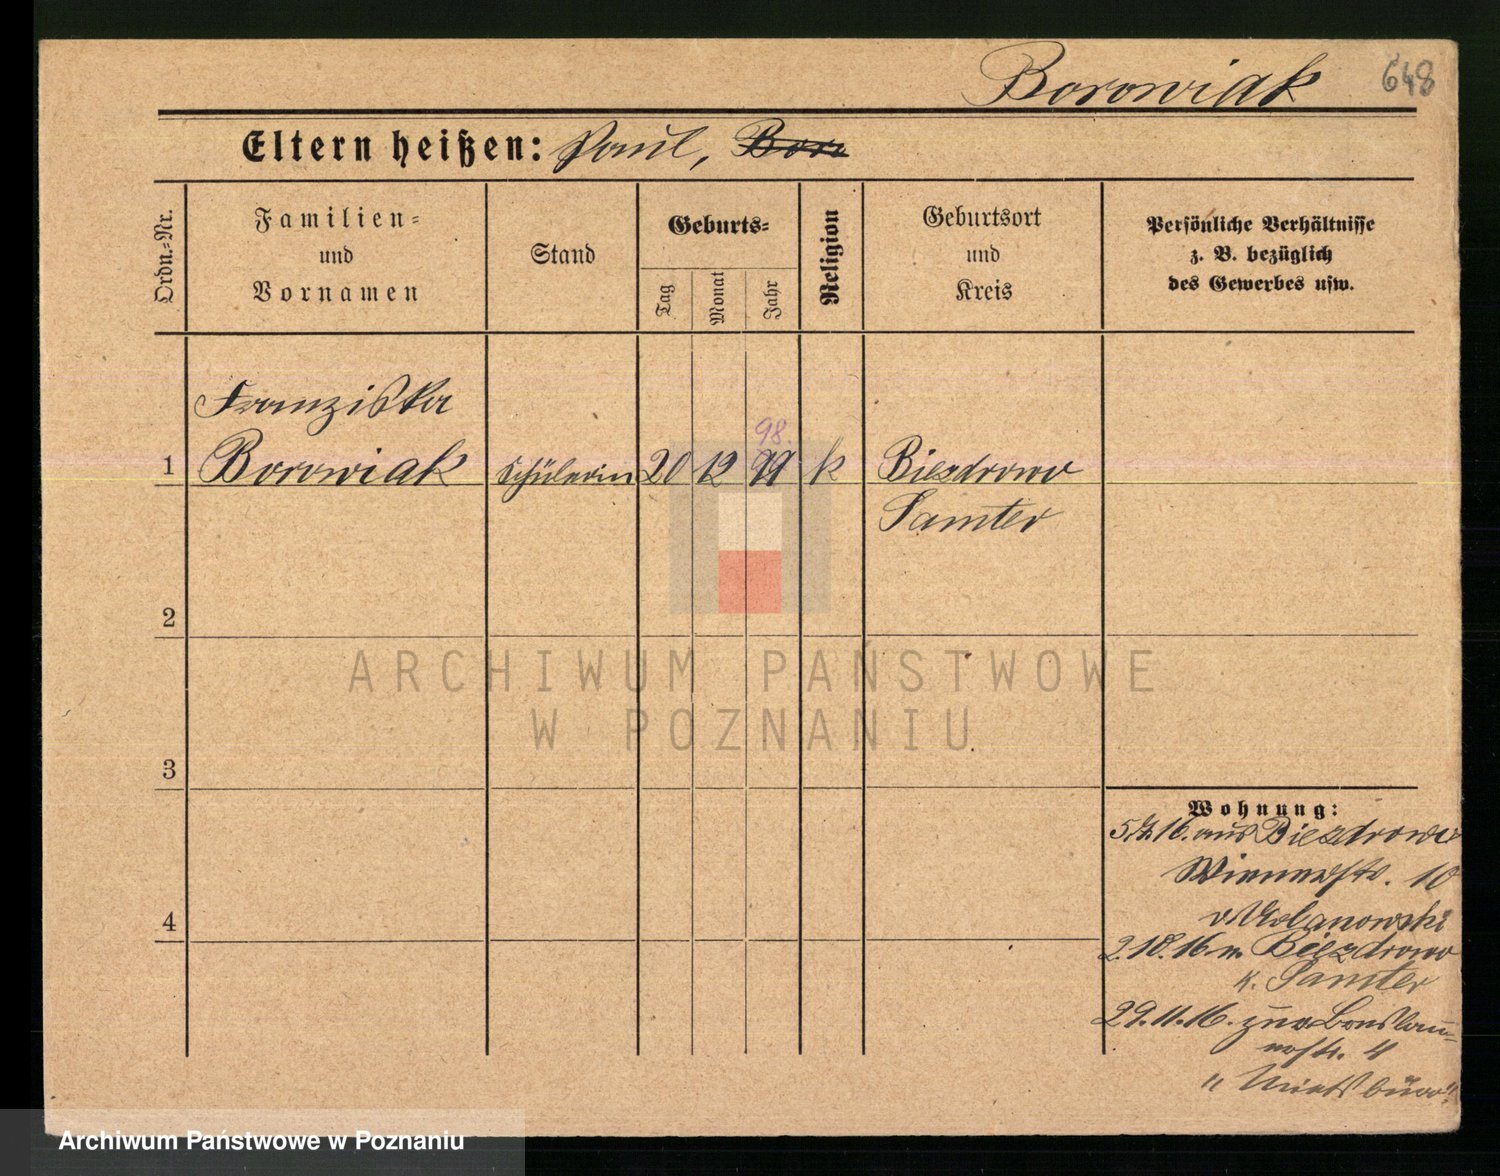 Borowiak 648
Eltern heißen: Paul, Bor
Ordn.-Nr.
Familien-
und
Vornamen
Stand
Geburts-
Tag
Monat
Jahr
Religion
Geburtsort
und
Kreis
Persönliche Verhältnisse
z. B. bezüglich
des Gewerbes usw.
Franziska
98.
1 Borowiak Schülerin 20 12 99 k Biezdrowo
Samter
2
ARCHIWUM PAŃSTWOWE
W POZNANIU
3
Wohnung:
16. aus Biezdrowo
Wienerstr. 10
2.10.16 n. Biezdrowo
K. Samter
29.11.16. zur Breslau-
erstr. 4
Archiwum Państwowe w Poznaniu
4